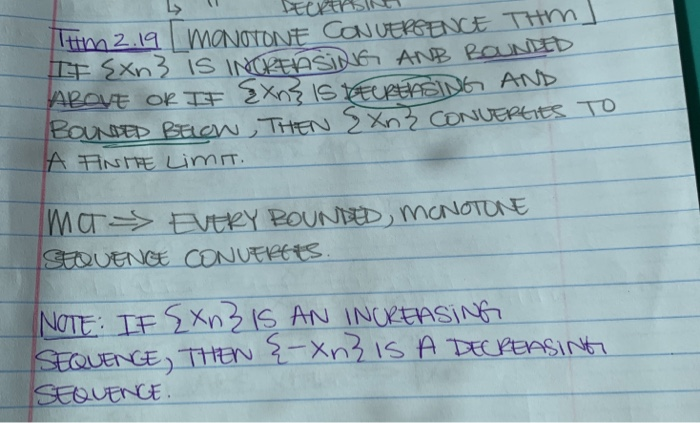 ↳ " DECREASING
THM 2.19 [MONOTONE CONVERGENCE THM]
IF {Xn} IS INCREASING AND BOUNDED
ABOVE OR IF {Xn} IS DECREASING AND
BOUNDED BELOW, THEN {Xn} CONVERGES TO
A FINITE LIMIT.
MCT => EVERY BOUNDED, MONOTONE
SEQUENCE CONVERGES.
NOTE: IF {Xn} IS AN INCREASING
SEQUENCE, THEN {-Xn} IS A DECREASING
SEQUENCE.